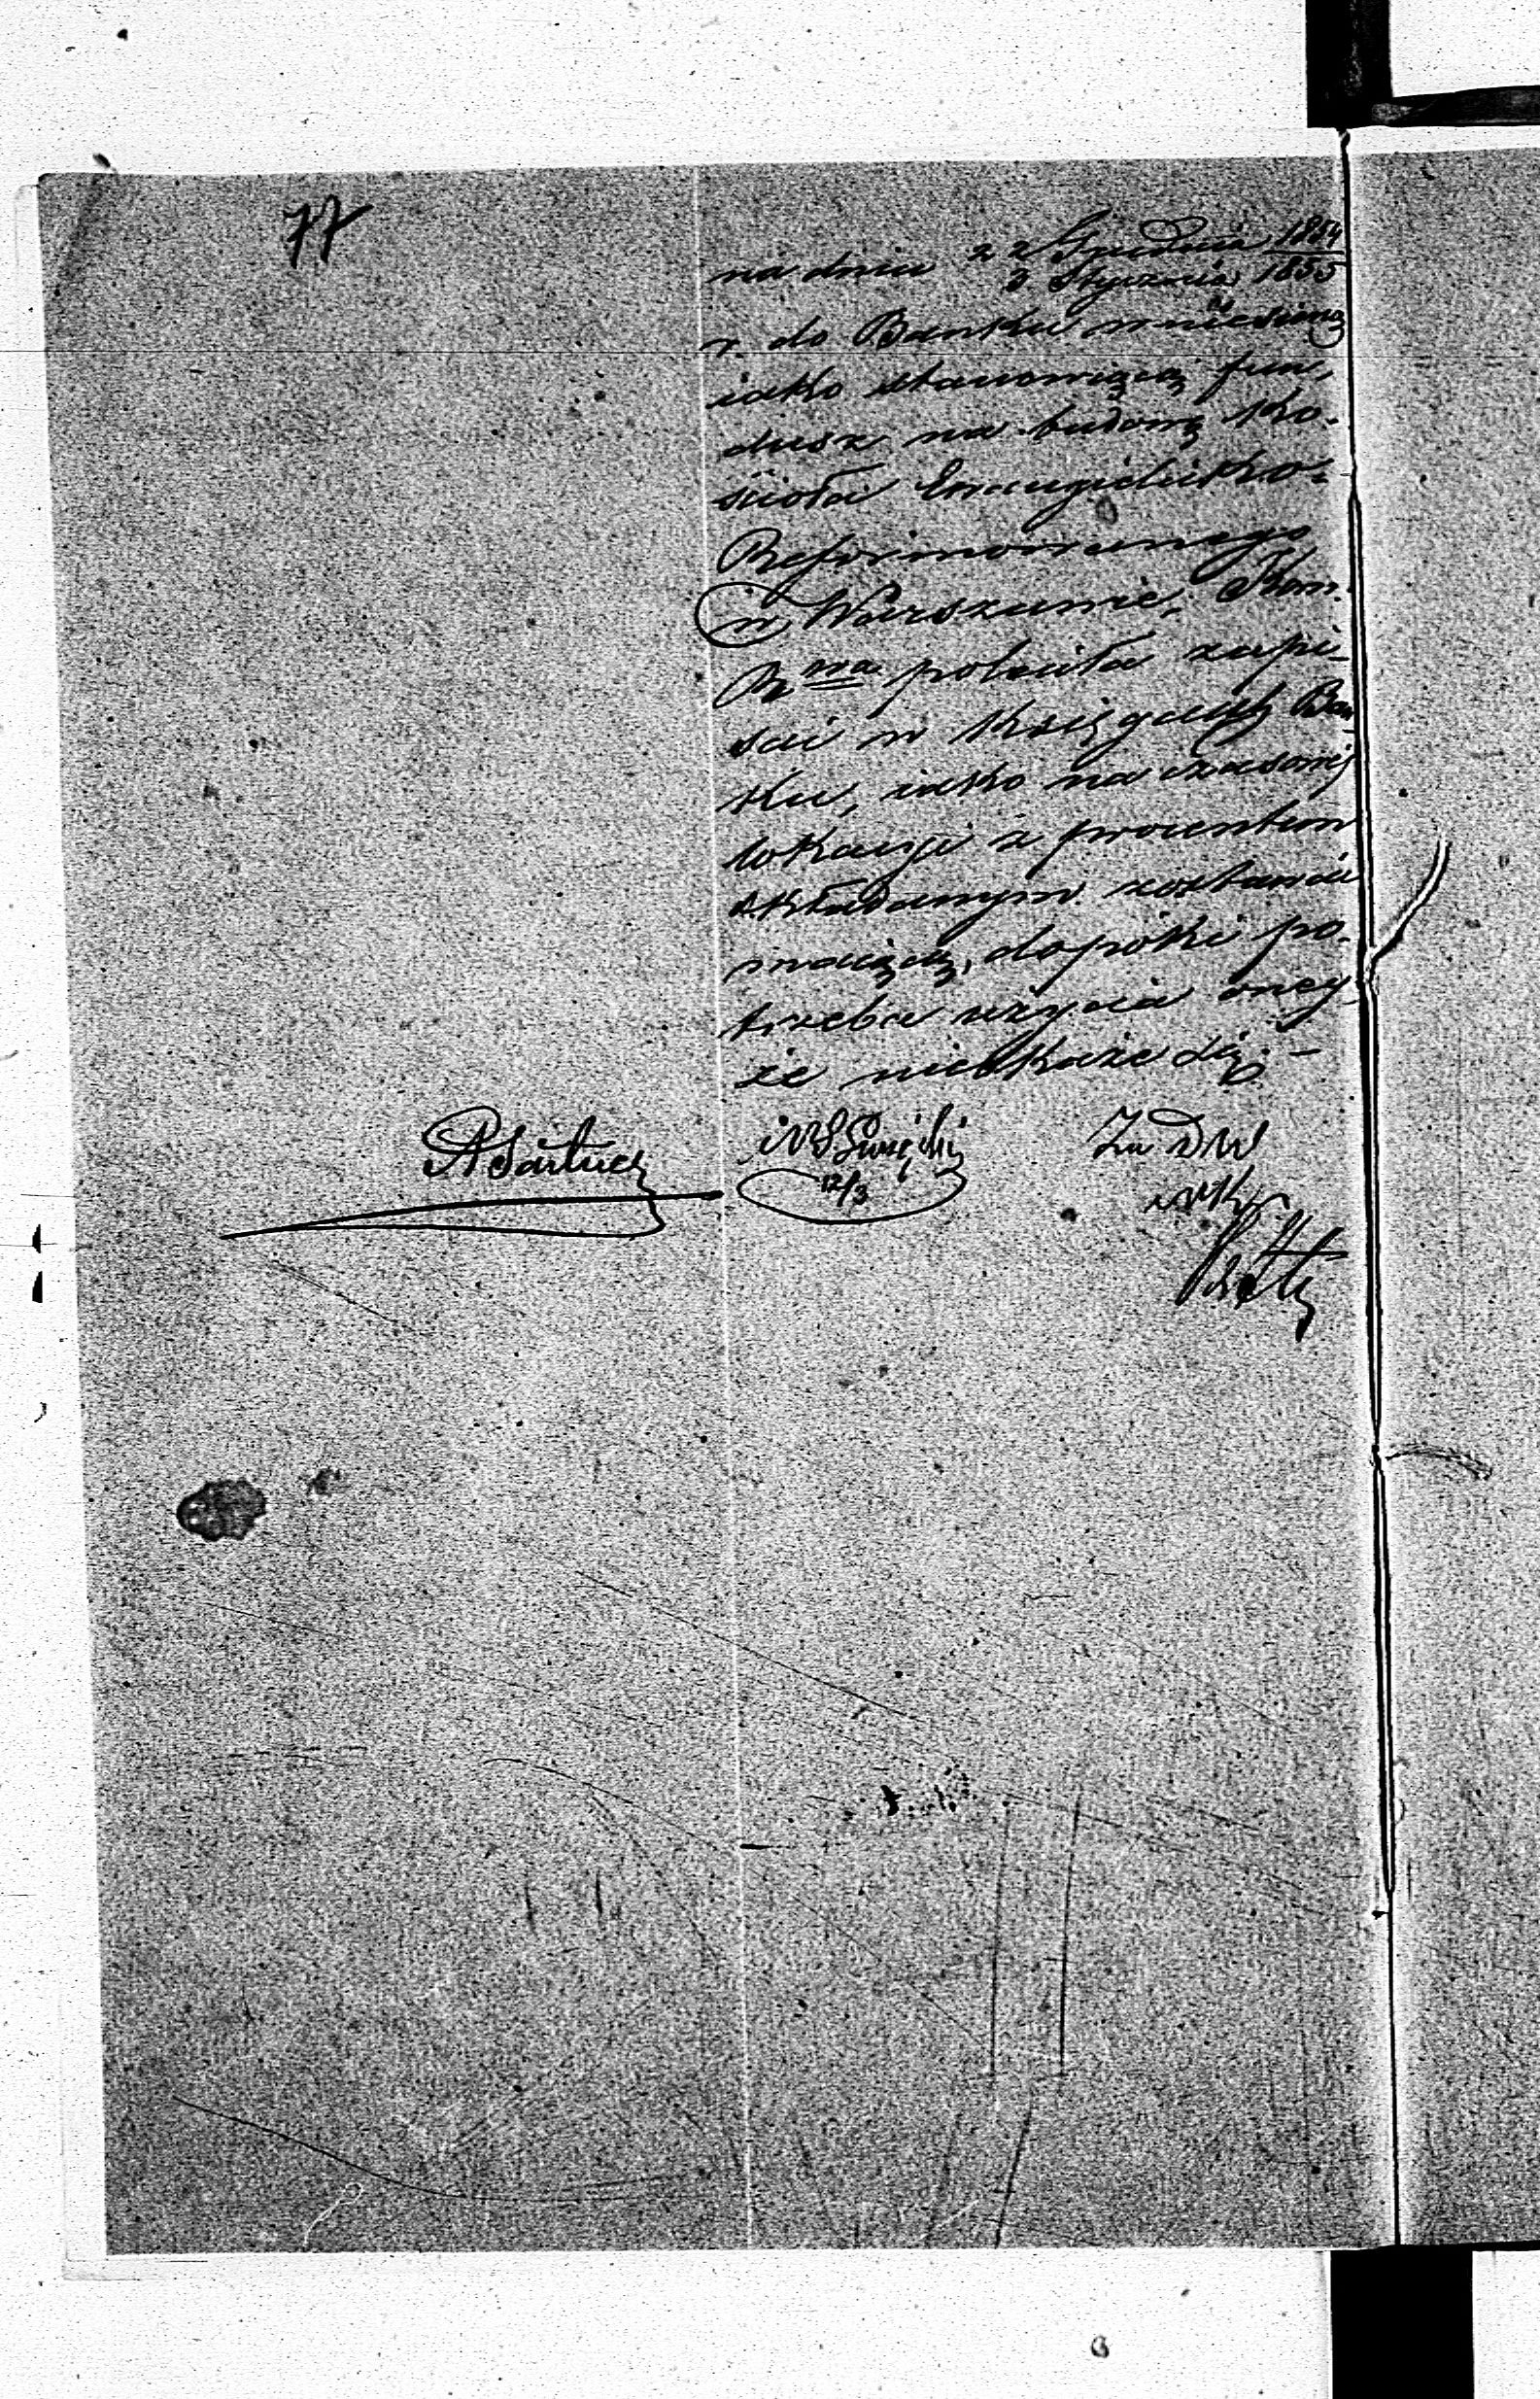 77
na dniu 22 Grudnia 1854
3 Stycznia 1855
r. do Banku wniesioną
iako stanowiącą fun,
dusz na budowę Ko-
ścioła Ewangielicko-
Reformowanego
w Warszawie, Kom.
R ma poleciła zapi-
sać w Księgach Ban
ku, iako na czasowej
lokacyi z procentem
składanym zostawać
maiącą, dopóki po-
trzeba użycia oney
że nie okaże się. -
12/3
Za DW